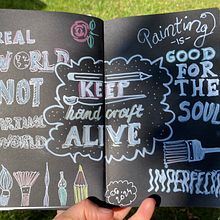 REAL
WORLD
NOT
KEEP
hand craft
ALIVE
Painting
-IS-
GOOD
FOR
THE
SOUL
IMPERFECT